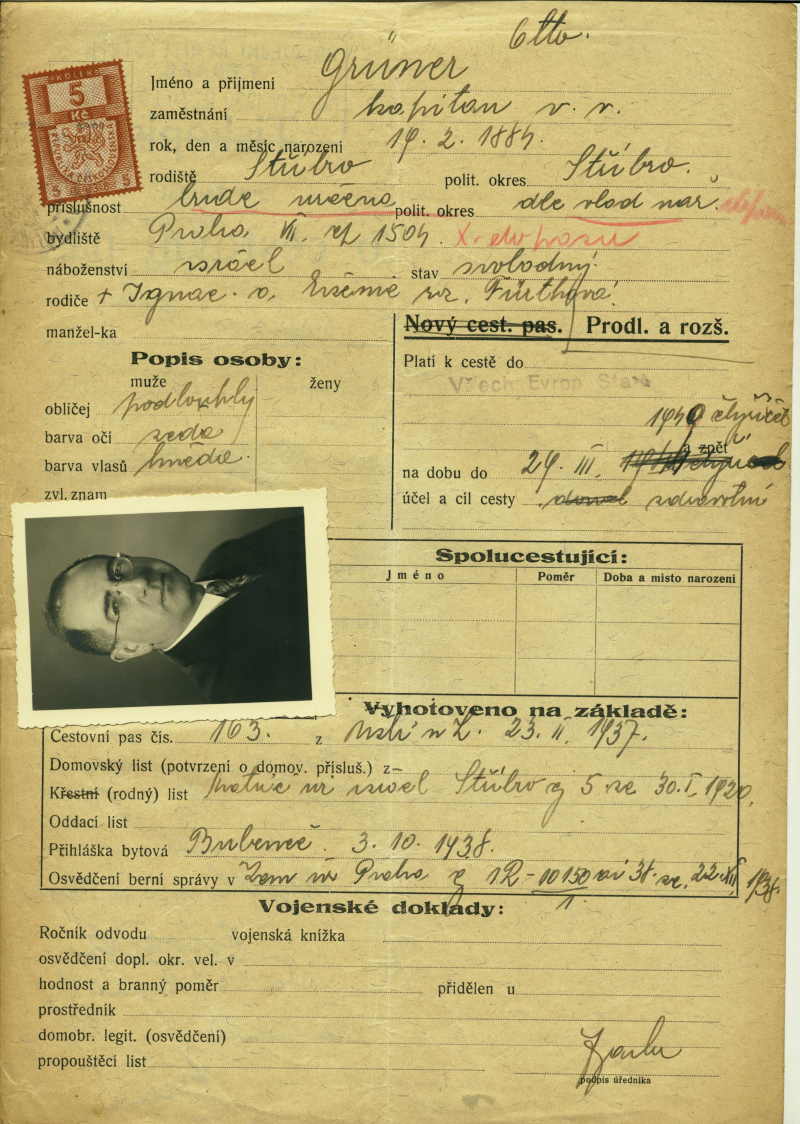 Otto.
Jméno a přijmení Grüner
zaměstnání kapitan v. v.
rok, den a měsíc narození 19. 2. 1884.
rodiště Stříbro polit. okres Stříbro.
příslušnost bude určena polit. okres dle vlad nař.
bydliště Praha VII. čp 1504. X. do pasu
náboženství israel stav svobodný.
rodiče + Ignac. a Evženie roz. Fürthová.
manžel-ka
Nový cest. pas. Prodl. a rozš.
Platí k cestě do
Všech Evrop Států
1940 čtyřicet
a zpět
na dobu do 29. III.
účel a cíl cesty zdravotní
Popis osoby:
muže ženy
obličej podlouhlý
barva očí šedá
barva vlasů hnědá.
zvl. znam
5
Kč
5 5
Spolucestující:
Jméno Poměr Doba a místo narození
Vyhotoveno na základě:
Cestovní pas čís. 163. z Ústí n L. 23. II. 1937.
Domovský list (potvrzení o domov. přísluš.) z
Křestní (rodný) list Matric úř israel Stříbro čj 5 ze 30. I. 1920.
Oddací list
Přihláška bytová Bubeneč. 3. 10. 1938.
Osvědčení berní správy v Zem úř Praha čj 1R-10150 ai 38. ze. 22. XII 1938.
Vojenské doklady:
Ročník odvodu vojenská knížka
osvědčení dopl. okr. vel. v
hodnost a branný poměr přidělen u
prostředník
domobr. legit. (osvědčení)
propouštěcí list
podpis úředníka